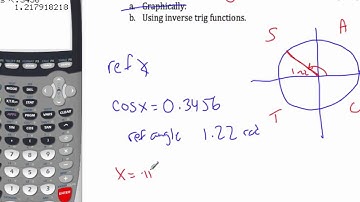 1.217918218
a. Graphically.
b. Using inverse trig functions.
ref ∡
cos x = 0.3456
ref angle 1.22 rad
x = π
S
A
T
C
1.22